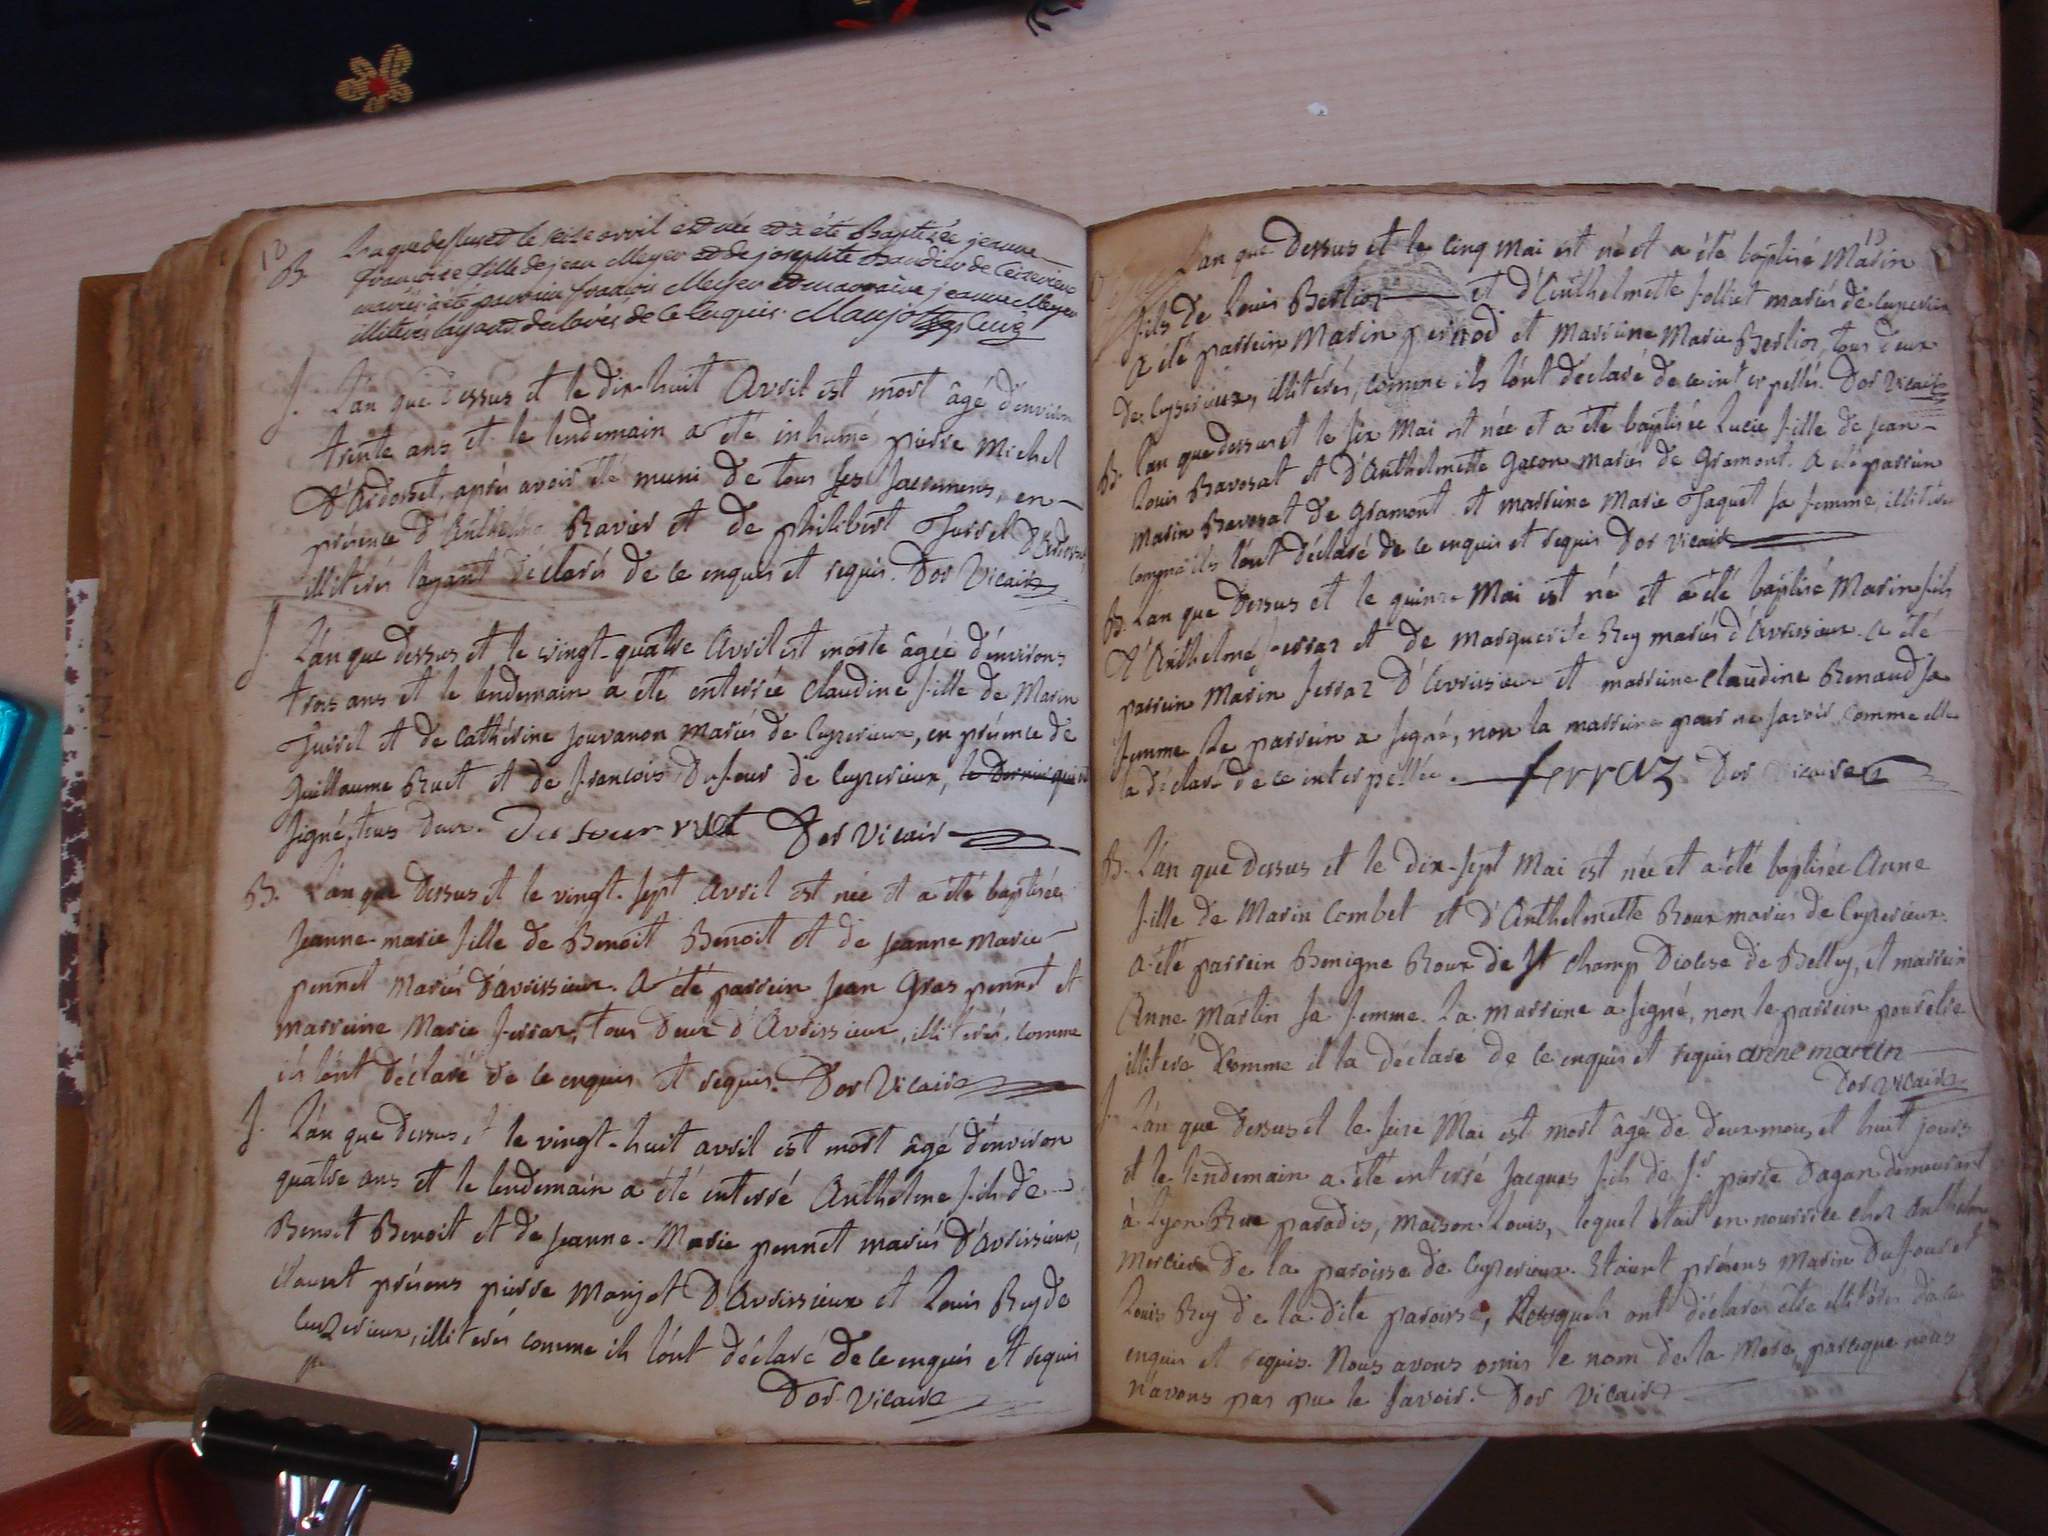 12
B. L'an que dessus et le seize avril est née et a été Baptizée jeanne
françoise fille de jean Meyer et de josephte Baudier de Ceizerieux
mariés a été parrain françois Meyer et marraine jeanne Meyer
illiteres layant declarés de ce enquis. Manjot Curé
S. L'an que dessus et le dix-huit Avril est mort âgé d'environ
trente ans et le lendemain a été inhumé pierre Michel
d'Ardosset, après avoir été muni de tous ses sacremens, en
présence d'Anthelme Ravier et de philibert Jurret d'Ardosset,
illiterés layant déclarés de ce enquis et requis. Dor Vicaire
S. L'an que dessus et le vingt-quatre Avril est morte âgée d'environs
trois ans et le lendemain a été enterrée Claudine fille de Marin
Juret et de Cathérine jouvanon Mariés de Ceyzerieux, en présence de
Guillaume Ruet et de françois Dufour de Ceyzerieux, le dernier qui ont
signé, tous deux. Dufour ruet Dor Vicaire
B. L'an que dessus et le vingt-sept Avril est née et a été baptisée
Jeanne-marie fille de Benoît Benoît et de jeanne marie
pennet Mariés d'avrissieux. A été parrein jean Gras pennet et
marreine Marie ferraz, tous deux d'Avrissieux, illiterés, comme
ils l'ont déclaré de ce enquis et requis. Dor Vicaire
S. L'an que dessus et le vingt-huit avril est mort âgé d'environ
quatre ans et le lendemain a été enterré Anthelme fils de
Benoit Benoit et de jeanne-Marie pennet mariés d'Avrissieux,
étaunt présens pierre Manjot d'Avrissieux et Louis Rey de
Ceyzerieux, illiterés comme ils l'ont déclaré de ce enquis et requis
Dor Vicaire
13
L'an que dessus et le cinq mai est né et a été baptisé Marin
fils de Louis Berlioz et d'Anthelmette jolliet mariés de Ceyzerieux
a été parrein Marin pernod et marreine Marie Berlioz, tous deux
de Ceyzerieux, illitérés, comme ils l'ont declaré de ce interpellés. Dor Vicaire
B. L'an que dessus et le six Mai est née et a été baptisée Lucie fille de jean
Louis Bavosat et d'Anthelmette Gacon Mariés de Gramont. A été parrein
Marin Bavosat de Gramont et marreine Marie Jaquet sa femme illiterés
comme ils l'ont déclaré de ce enquis et requis Dor Vicaire
B. L'an que dessus et le quinze Mai est né et a été baptisé Marin fils
d'Anthelme ferraz et de Marguerite Rey mariés d'Avrissieux. a été
parrein Marin ferraz d'Avrissieux et marreine Claudine Renaud sa
femme le parrein a signé, non la marreine pour ne savoir comme elle
la déclaré de ce interpellée. ferraz Dor Vicaire
B. L'an que dessus et le dix-sept Mai est née et a été baptisée Anne
fille de Marin Combet et d'Anthelmette Roux mariés de Ceyzerieux.
a été parrein Benigne Roux de St champ Diocese de Belley, et marrein
Anne Martin sa femme. La marreine a signé, non le parrein pour être
illiteré comme il la déclare de ce enquis et requis anne martin
Dor Vicaire
S. L'an que dessus et le seize Mai est mort âgé de deux mois et huit jours
et le lendemain a été enterré Jacques fils de Sr pierre Dagan demeurant
à Lyon Rue paradis, maison Louis, lequel était en nourrice chez Anthelme
Mercier de la paroisse de Ceyzerieux. Etaunt présens Marin Dufour et
Louis Rey de la dite paroisse, lesquels ont déclarés être illitérés de ce
enquis et requis. Nous avons omis le nom de la Mere, parceque nous
n'avons pas pu le savoir. Dor Vicaire